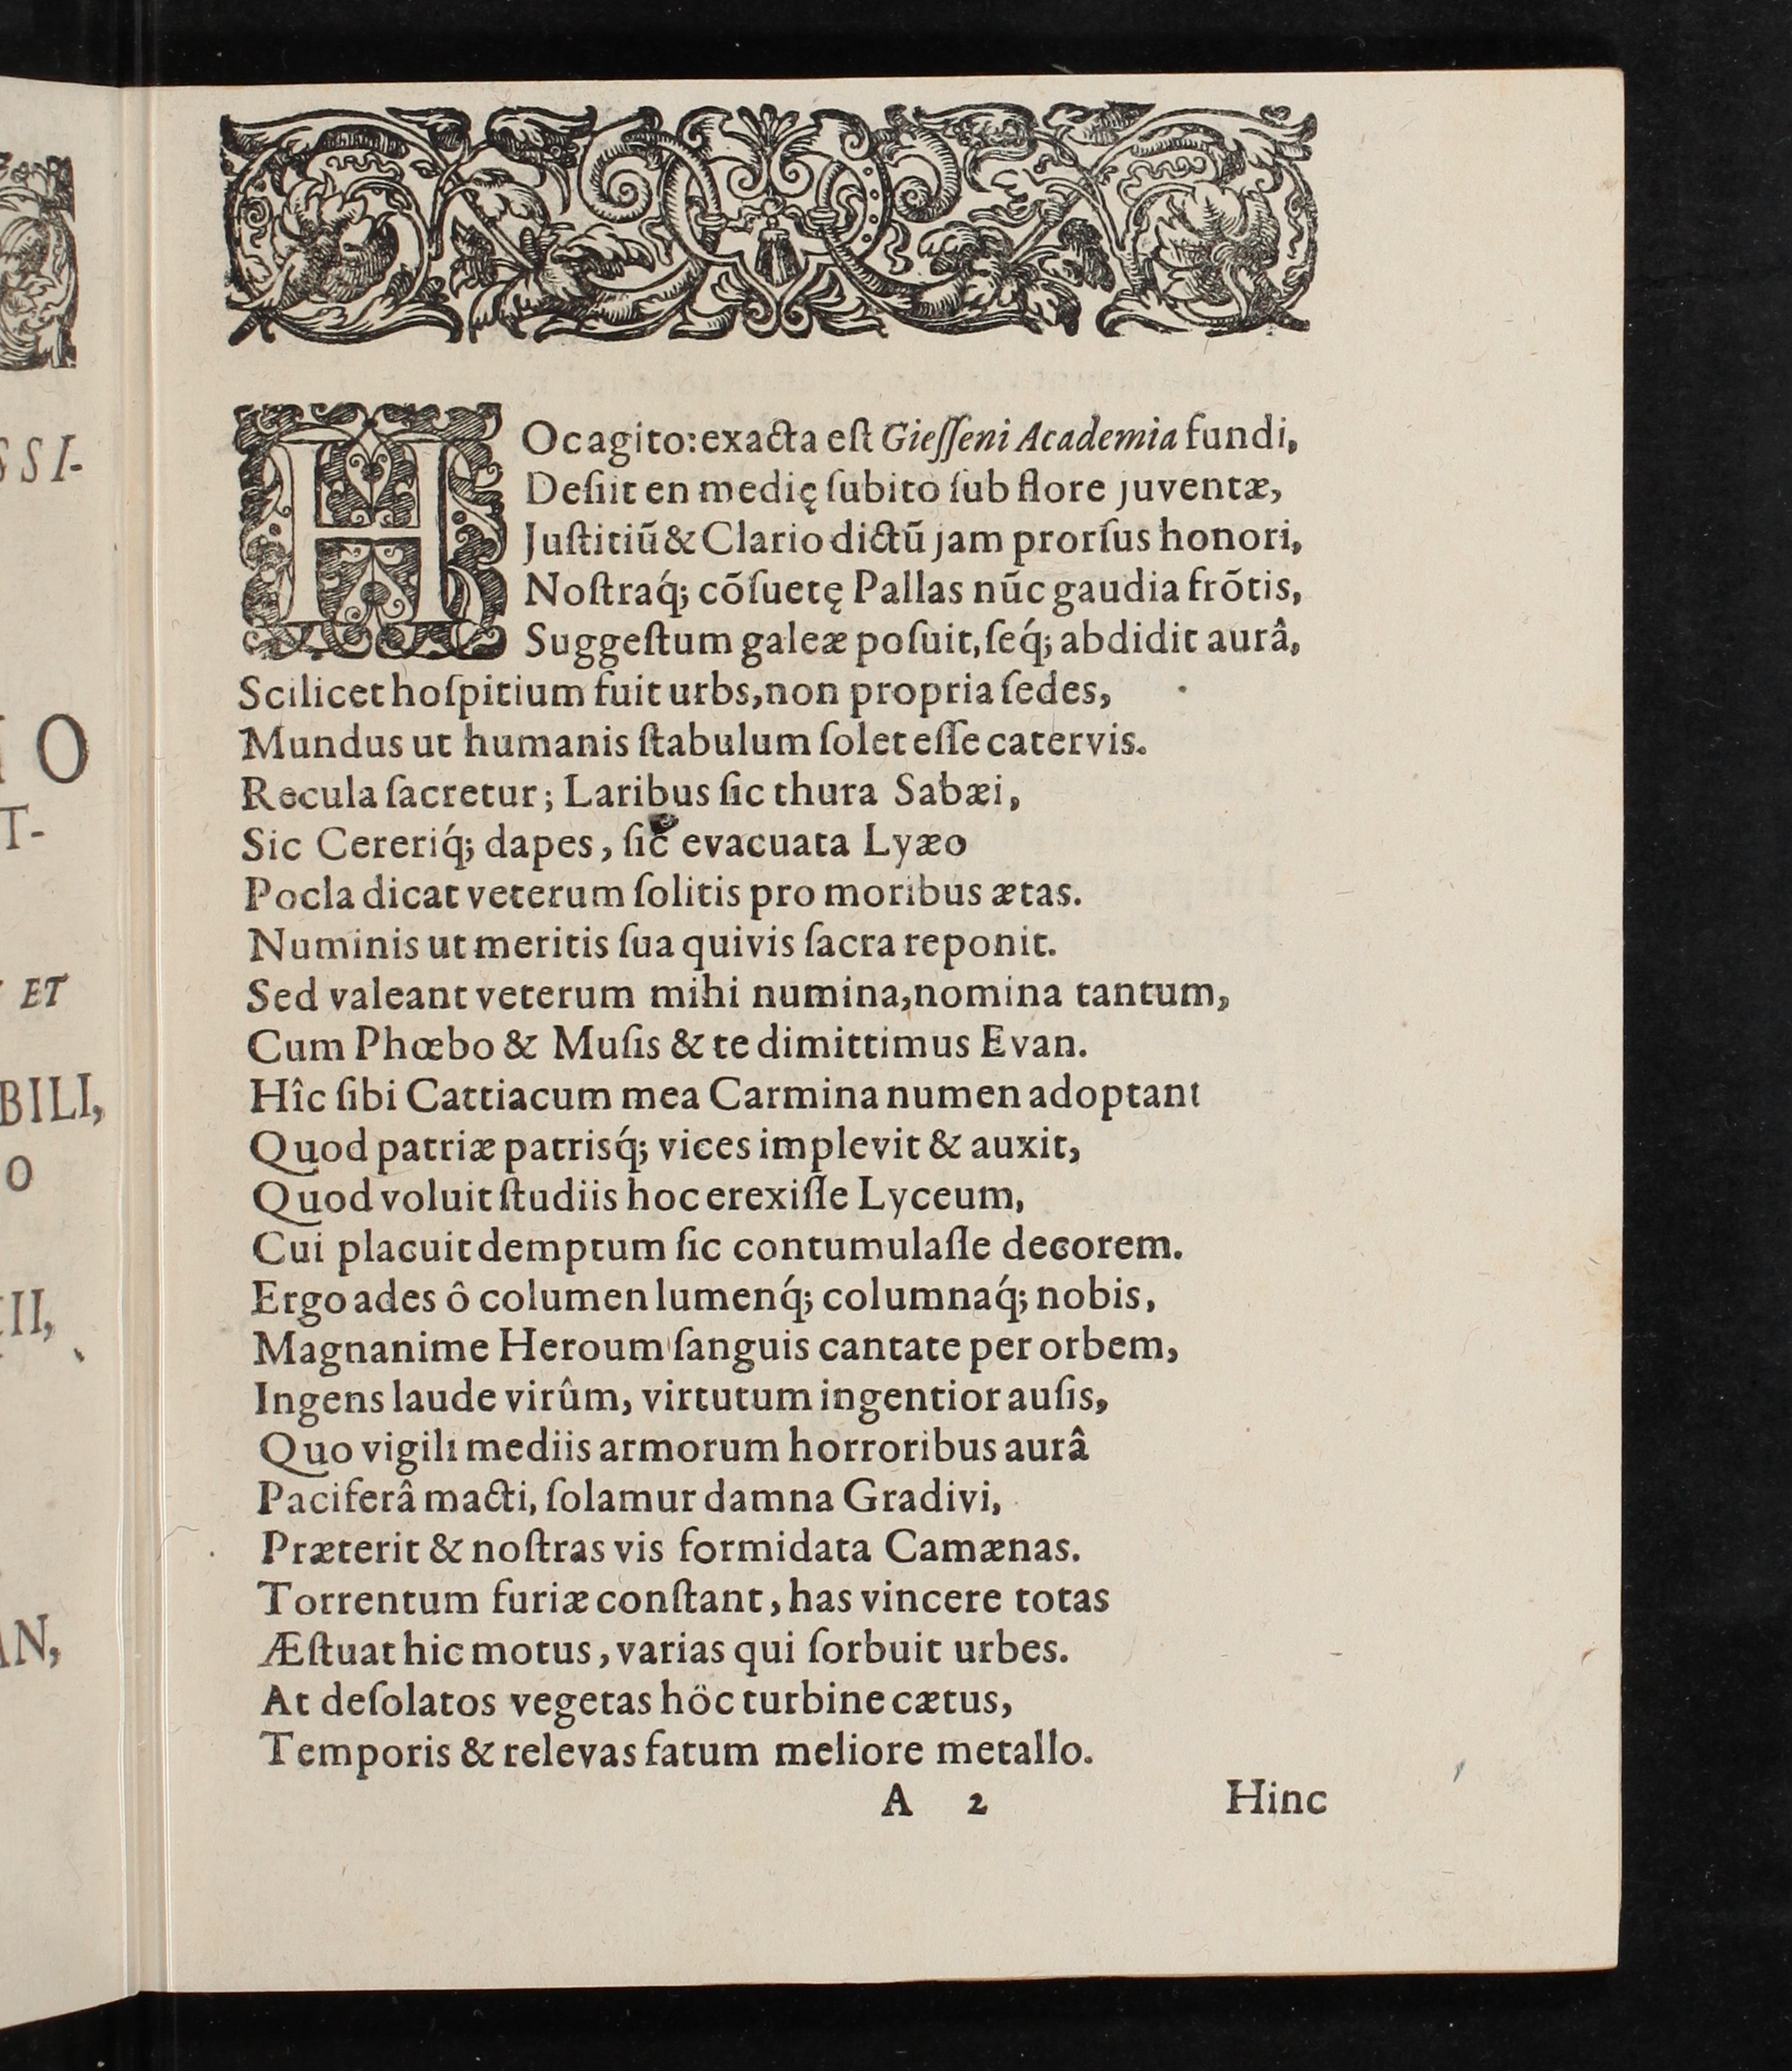 SSI-
IO
T-
ET
BILI,
O
II,
AN,
HOc agito: exacta eſt Gieſſeni Academia fundi,
Deſiit en medię ſubitò ſub flore juventæ,
Juſtitiũ & Clario dictũ jam prorſus honori,
Noſtraq́; cõſuetę Pallas nũc gaudia frõtis,
Suggeſtum galeæ poſuit, ſeq́; abdidit aurâ,
Scilicet hoſpitium fuit urbs, non propria ſedes,
Mundus ut humanis ſtabulum ſolet eſſe catervis.
Recula ſacretur; Laribus ſic thura Sabæi,
Sic Cereriq́; dapes, ſic evacuata Lyæo
Pocla dicat veterum ſolitis pro moribus ætas.
Numinis ut meritis ſua quivis ſacra reponit.
Sed valeant veterum mihi numina, nomina tantum,
Cum Phœbo & Muſis & te dimittimus Evan.
Hîc ſibi Cattiacum mea Carmina numen adoptant
Quod patriæ patrisq́; vices implevit & auxit,
Quod voluit ſtudiis hoc erexiſſe Lyceum,
Cui placuit demptum ſic contumulaſſe decorem.
Ergo ades ô columen lumenq́; columnaq́; nobis,
Magnanime Heroum ſanguis cantate per orbem,
Ingens laude virûm, virtutum ingentior auſis,
Quo vigili mediis armorum horroribus aurâ
Paciferâ macti, ſolamur damna Gradivi,
Præterit & noſtras vis formidata Camænas.
Torrentum furiæ conſtant, has vincere totas
Æſtuat hic motus, varias qui ſorbuit urbes.
At deſolatos vegetas höc turbine cætus,
Temporis & relevas fatum meliore metallo.
A 2 Hinc